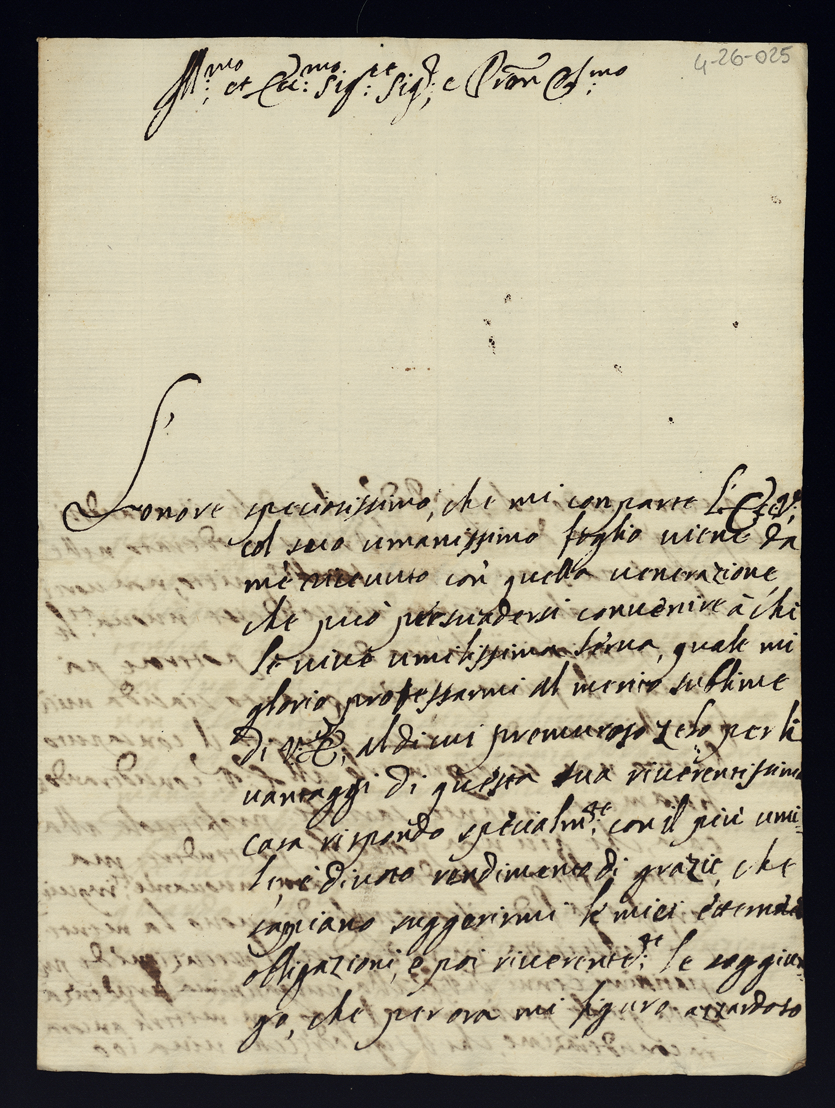 4-26-025
Ill:mo et Ecc:mo Sig:re Sig:r e Pron Col:mo
L'onore speciosissimo, che mi comparte L'Ecc:
col suo umanissimo foglio viene dà
mè riceuuto con quella uenerazione,
che può persuadersi conuenire à chi
le uiue umilissima serua, quale mi
glorio professarmi al merito sublime
di V:E:, al di cui premuroso zelo per li
uantaggi di questa sua riuerentissima
casa rispondo specialm:te con il più umi-
le, e diuoto rendimento di grazie, che
sappiano suggerirmi le mici
obbligazioni, e poi riuerente:te le soggiun
go, che per ora mi figuro azzardoso